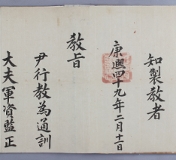 知製教者
康熙四十九年二月十一日
教旨
尹行教為通訓
大夫軍資監正